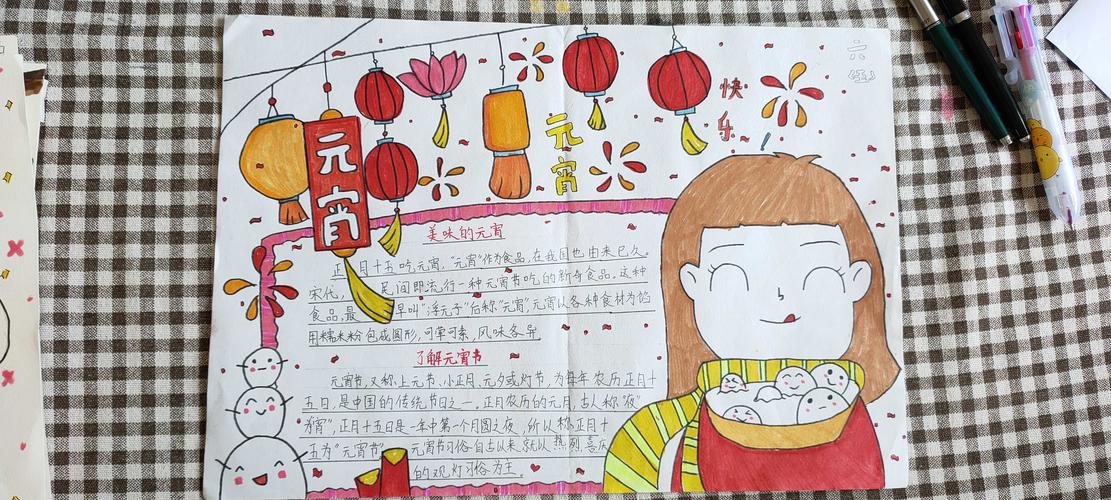 六
(5)
快
乐
元
宵
元
宵
美味的元宵
正月十五吃元宵，"元宵"作为食品，在我国也由来已久。
宋代，民间即流行一种元宵节吃的新奇食品。这种
食品，最早叫"浮元子"后称"元宵"，元宵以各种食材为馅
用糯米粉包成圆形，可荤可素，风味各异
了解元宵书
元宵节，又称上元节、小正月、元夕或灯节，为每年农历正月十
五日，是中国的传统节日之一。正月农历的元月，古人称"夜"
"宵"，正月十五日是一年中第一个月圆之夜，所以称正月十
五为"元宵节"。元宵节习俗自古以来就以热烈喜庆
的观灯习俗为主。